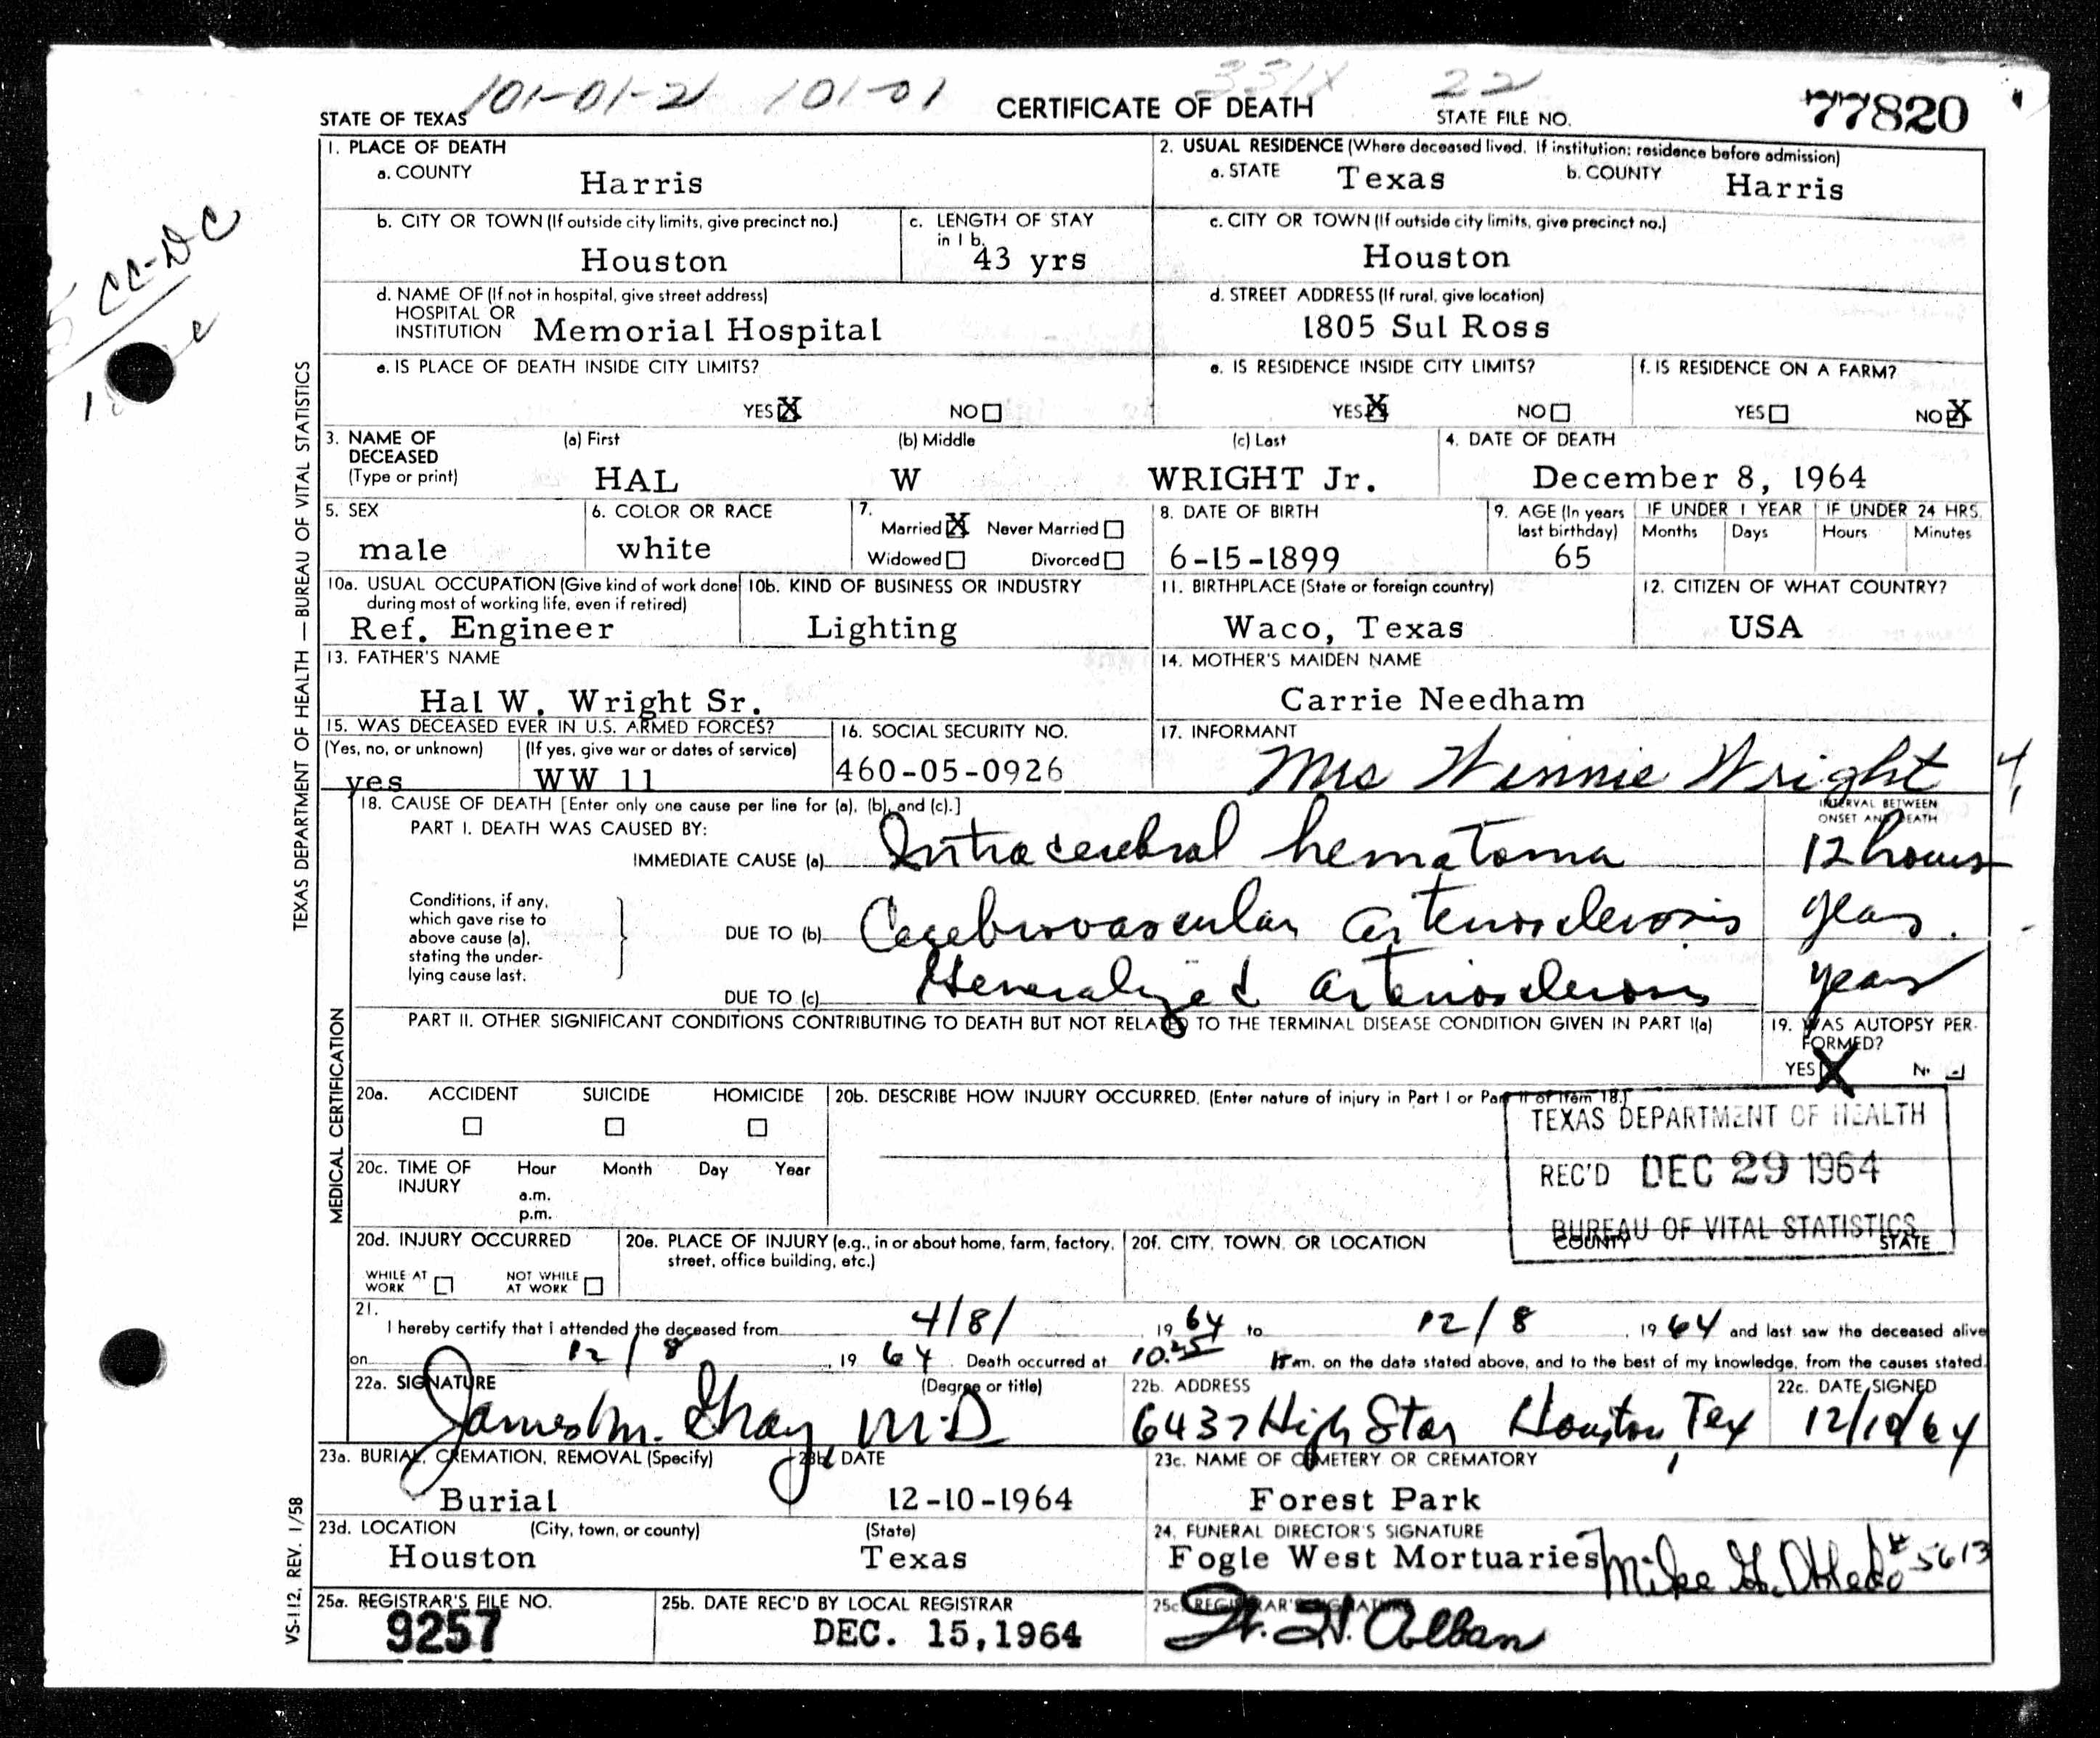 101-01-21 101-01 331X 22
STATE OF TEXAS CERTIFICATE OF DEATH STATE FILE NO. 77820
5 CC-DC
TEXAS DEPARTMENT OF HEALTH — BUREAU OF VITAL STATISTICS
1. PLACE OF DEATH
a. COUNTY Harris
2. USUAL RESIDENCE (Where deceased lived. If institution: residence before admission)
a. STATE Texas b. COUNTY Harris
b. CITY OR TOWN (If outside city limits, give precinct no.) Houston
c. LENGTH OF STAY in 1 b. 43 yrs
c. CITY OR TOWN (If outside city limits, give precinct no.) Houston
d. NAME OF (If not in hospital, give street address)
HOSPITAL OR
INSTITUTION Memorial Hospital
d. STREET ADDRESS (If rural, give location)
1805 Sul Ross
e. IS PLACE OF DEATH INSIDE CITY LIMITS?
YES X NO
e. IS RESIDENCE INSIDE CITY LIMITS?
YES X NO
f. IS RESIDENCE ON A FARM?
YES NO X
3. NAME OF DECEASED (Type or print)
(a) First (b) Middle (c) Last
HAL W WRIGHT Jr.
4. DATE OF DEATH
December 8, 1964
5. SEX
male
6. COLOR OR RACE
white
7. Married X Never Married
Widowed Divorced
8. DATE OF BIRTH
6-15-1899
9. AGE (In years last birthday)
65
IF UNDER 1 YEAR
Months Days
IF UNDER 24 HRS.
Hours Minutes
10a. USUAL OCCUPATION (Give kind of work done
during most of working life, even if retired)
Ref. Engineer
10b. KIND OF BUSINESS OR INDUSTRY
Lighting
11. BIRTHPLACE (State or foreign country)
Waco, Texas
12. CITIZEN OF WHAT COUNTRY?
USA
13. FATHER'S NAME
Hal W. Wright Sr.
14. MOTHER'S MAIDEN NAME
Carrie Needham
15. WAS DECEASED EVER IN U.S. ARMED FORCES?
(Yes, no, or unknown) (If yes, give war or dates of service)
yes WW 11
16. SOCIAL SECURITY NO.
460-05-0926
17. INFORMANT
Mrs Winnie Wright
MEDICAL CERTIFICATION
18. CAUSE OF DEATH [Enter only one cause per line for (a), (b), and (c).]
INTERVAL BETWEEN
ONSET AND DEATH
PART I. DEATH WAS CAUSED BY:
IMMEDIATE CAUSE (a) Intracerebral hematoma 12 hours
Conditions, if any,
which gave rise to
above cause (a),
stating the under-
lying cause last.
DUE TO (b) Cerebrovascular arteriosclerosis years.
DUE TO (c) Generalized arteriosclerosis years
PART II. OTHER SIGNIFICANT CONDITIONS CONTRIBUTING TO DEATH BUT NOT RELATED TO THE TERMINAL DISEASE CONDITION GIVEN IN PART I(a)
19. WAS AUTOPSY PER-
FORMED?
YES X
20a. ACCIDENT SUICIDE HOMICIDE
20b. DESCRIBE HOW INJURY OCCURRED. (Enter nature of injury in Part I or Part II of Item 18.)
TEXAS DEPARTMENT OF HEALTH
REC'D DEC 29 1964
BUREAU OF VITAL STATISTICS
20c. TIME OF INJURY
Hour Month Day Year
a.m.
p.m.
20d. INJURY OCCURRED
WHILE AT WORK NOT WHILE AT WORK
20e. PLACE OF INJURY (e.g., in or about home, farm, factory,
street, office building, etc.)
20f. CITY, TOWN, OR LOCATION COUNTY STATE
21.
I hereby certify that I attended the deceased from 4/8/ 1964 to 12/8, 1964 and last saw the deceased alive
on 12/8, 1964. Death occurred at 10:25 m. on the data stated above, and to the best of my knowledge, from the causes stated.
22a. SIGNATURE (Degree or title)
James M. Gray M.D
22b. ADDRESS
6437 High Star Houston, Tex
22c. DATE SIGNED
12/10/64
23a. BURIAL, CREMATION, REMOVAL (Specify)
Burial
23b. DATE
12-10-1964
23c. NAME OF CEMETERY OR CREMATORY
Forest Park
23d. LOCATION (City, town, or county) (State)
Houston Texas
24. FUNERAL DIRECTOR'S SIGNATURE
Fogle West Mortuaries Mike #5613
25a. REGISTRAR'S FILE NO.
9257
25b. DATE REC'D BY LOCAL REGISTRAR
DEC. 15, 1964
25c. REGISTRAR'S SIGNATURE
Alban
VS-112, REV. 1/58